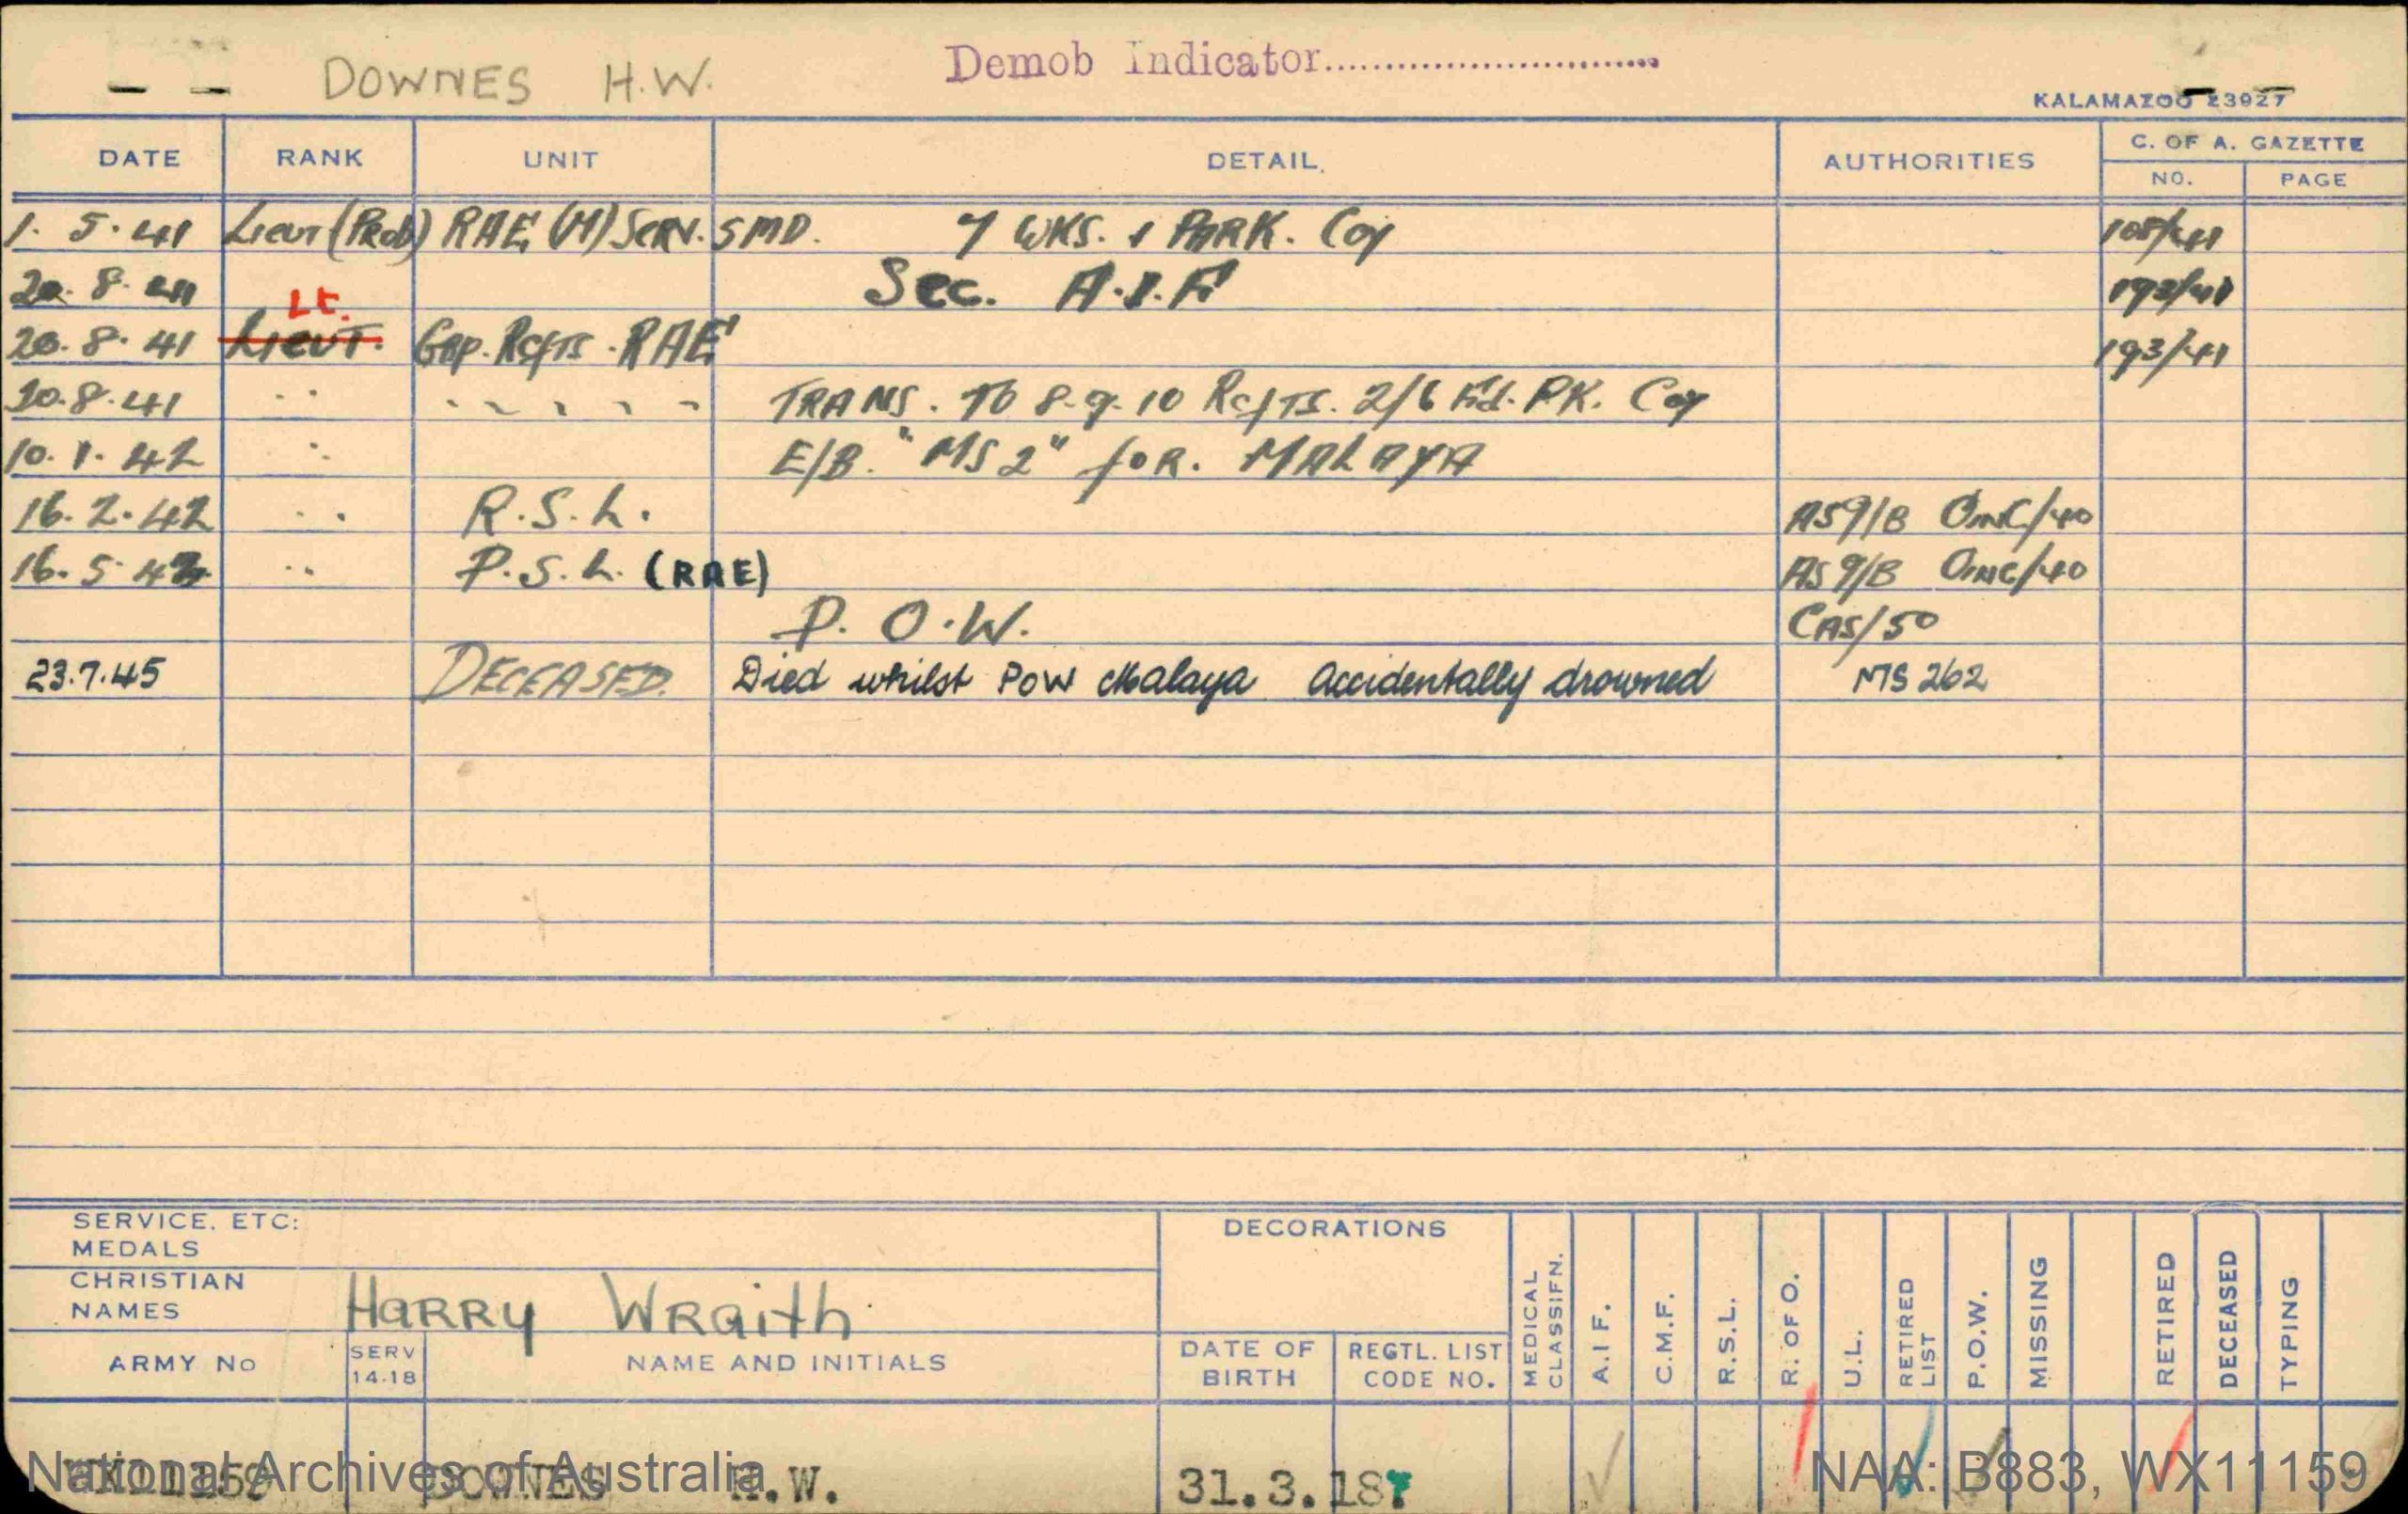 DOWNES H.W. Demob Indicator
KALAMAZOO 23927
DATE RANK UNIT DETAIL. AUTHORITIES C. OF A. GAZETTE
NO. PAGE
1. 5. 41 Lieut (Prob) RAE (M) Serv. SMD. 7 WKS. & PARK. Coy 108/41
20. 8. 41 Sec. A.I.F. 193/41
Lt.
20. 8. 41 Lieut. Gnp. Rcfts. RAE 193/41
20.8.41 TRANS. TO 8.9.10 Rcfts. 2/6 Fd. PK. Coy
10. 1. 42 E/B. "MS 2" foR. MALAYA
16. 2. 42 R.S.L. AS9/B OMC/40
16. 5. 42 P.S.L. (RAE) AS9/B OMC/40
P. O.W. CAS/50
23.7.45 DECEASED. Died whilst POW Malaya Accidentally drowned MS 262
SERVICE. ETC:
MEDALS
DECORATIONS
CHRISTIAN
NAMES
HaRRy WRaith
ARMY No SERV
14-18
NAME AND INITIALS
DATE OF
BIRTH
REGTL. LIST
CODE NO.
MEDICAL
CLASSIFN.
A.I F.
C.M.F.
R.S.L.
R. OF O.
U.L.
RETIRED
LIST
P.O.W.
MISSING
RETIRED
DECEASED
TYPING
WX11159 DOWNES H.W. 31.3.18
National Archives of Australia NAA: B883, WX11159